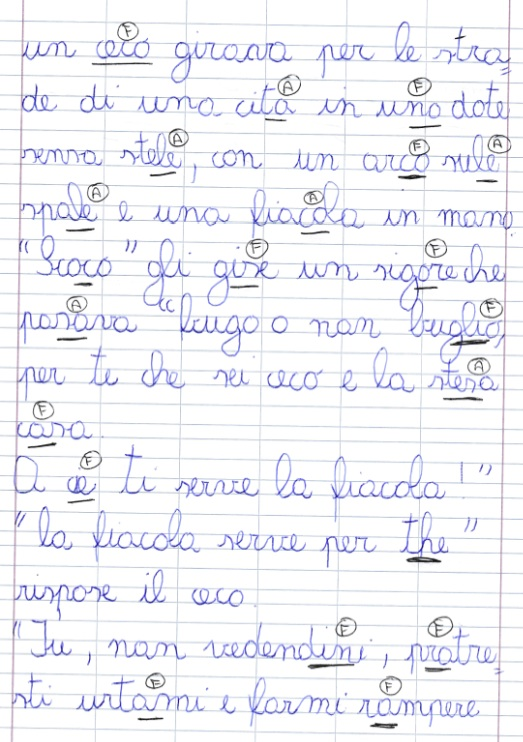 Ⓕ
un ceco girava per le stra=
Ⓐ Ⓕ
de di una cità in uno dote
Ⓐ Ⓕ Ⓐ
senza stele, con un arco sule
Ⓐ Ⓐ
spale e una fiacola in mano.
Ⓕ Ⓕ
"Scoco" gli gise un sigore che
Ⓐ Ⓕ
pasava "lugo o nan buglio,
Ⓐ
per te che sei ceco e la stesa
Ⓕ
casa.
Ⓕ
A ce ti serve la fiacola!"
"la fiacola serve per the"
rispose il ceco.
Ⓕ Ⓕ
"Tu, nan vedendini, pratre=
Ⓕ Ⓕ
sti urtami e farmi rampere